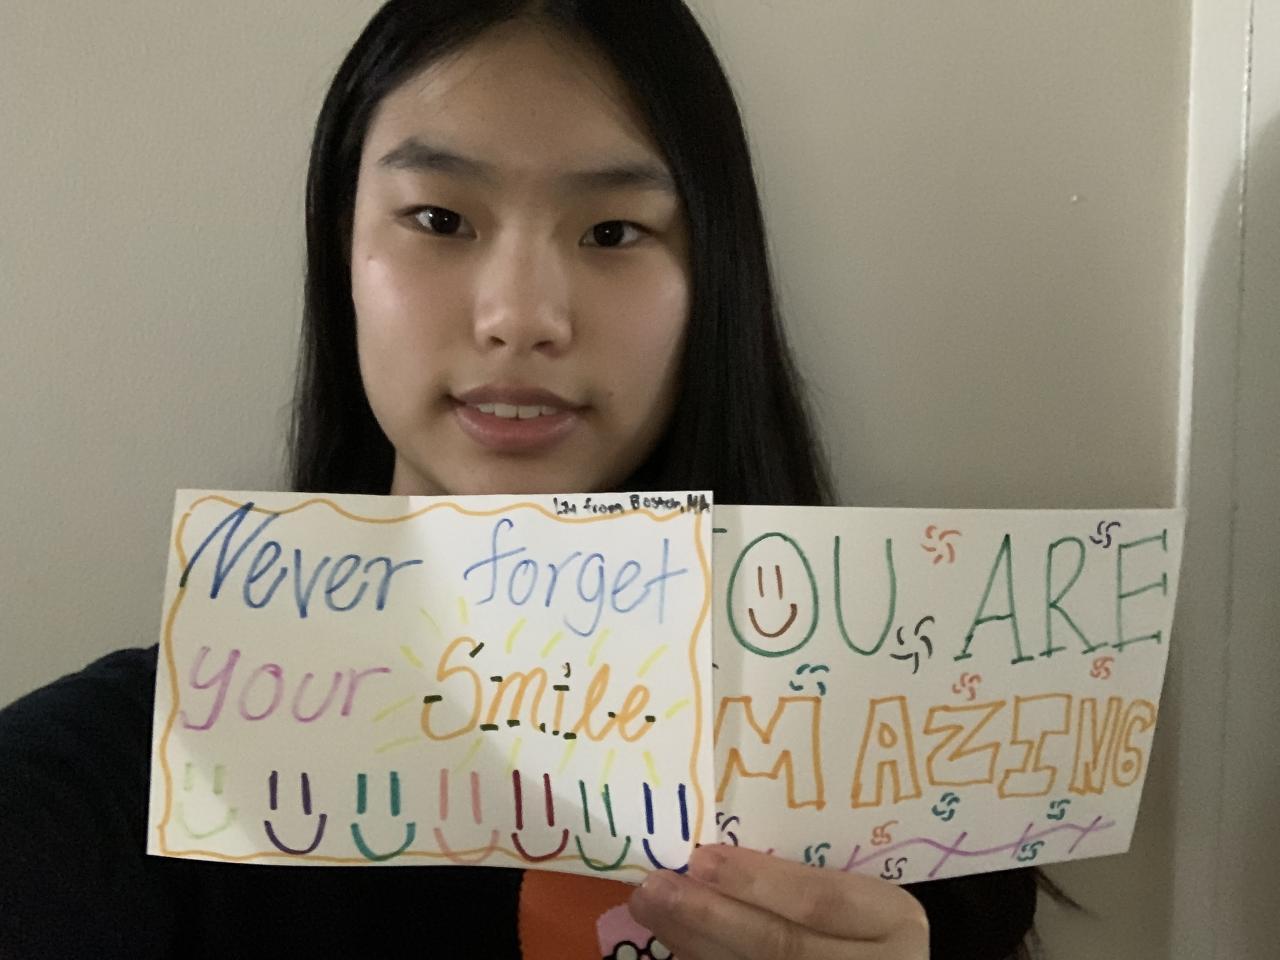 from Boston, MA
Never forget
your Smile
OU ARE
MAZING